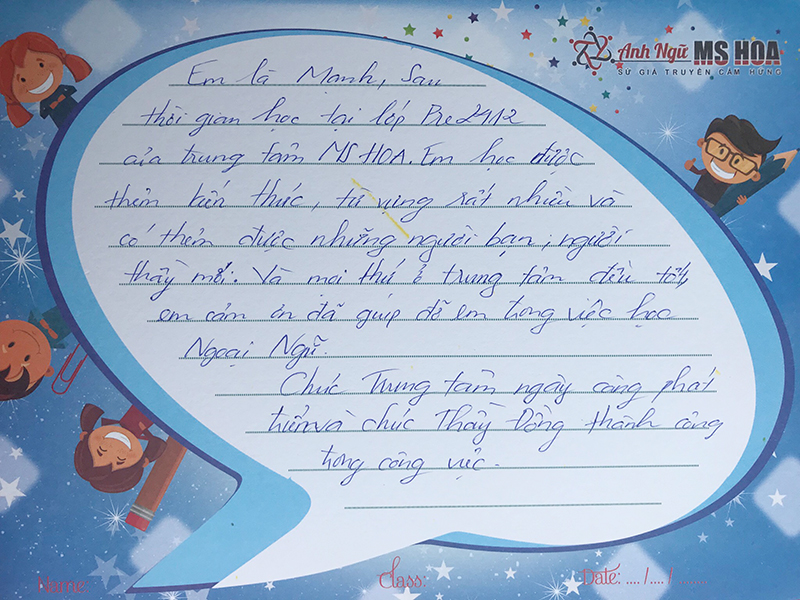 Anh Ngữ MS HOA
SỨ GIẢ TRUYỀN CẢM HỨNG
Em là Mạnh, Sau
thời gian học tại lớp Pre2412
của trung tâm MS HOA. Em học được
thêm kiến thức, từ vựng rất nhiều và
có thêm được những người bạn, người
thầy mới. Và mọi thứ ở trung tâm đều tốt,
em cảm ơn đã giúp đỡ em trong việc học
Ngoại Ngữ.
Chúc Trung tâm ngày càng phát
triển và chúc Thầy Đồng thành công
trong công việc.
Name:
Class:
Date: .... /.... / ......